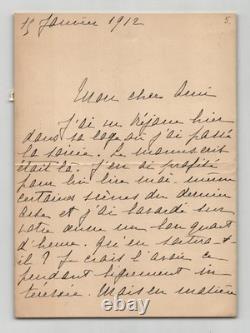 15 Janvier 1912
5.
Mon cher Ami
J'ai vu Réjane hier
dans sa loge où j'ai passé
la soirée. Le manuscrit
était là. J'en ai profité
pour lui lire moi-même
certaines scènes du dernier
acte et j'ai bavardé sur
votre œuvre un bon quart
d'heure. Qu'en sortira-t-
il ? Je crois l'avoir ce-
pendant vivement in-
téressée. Mais en matière